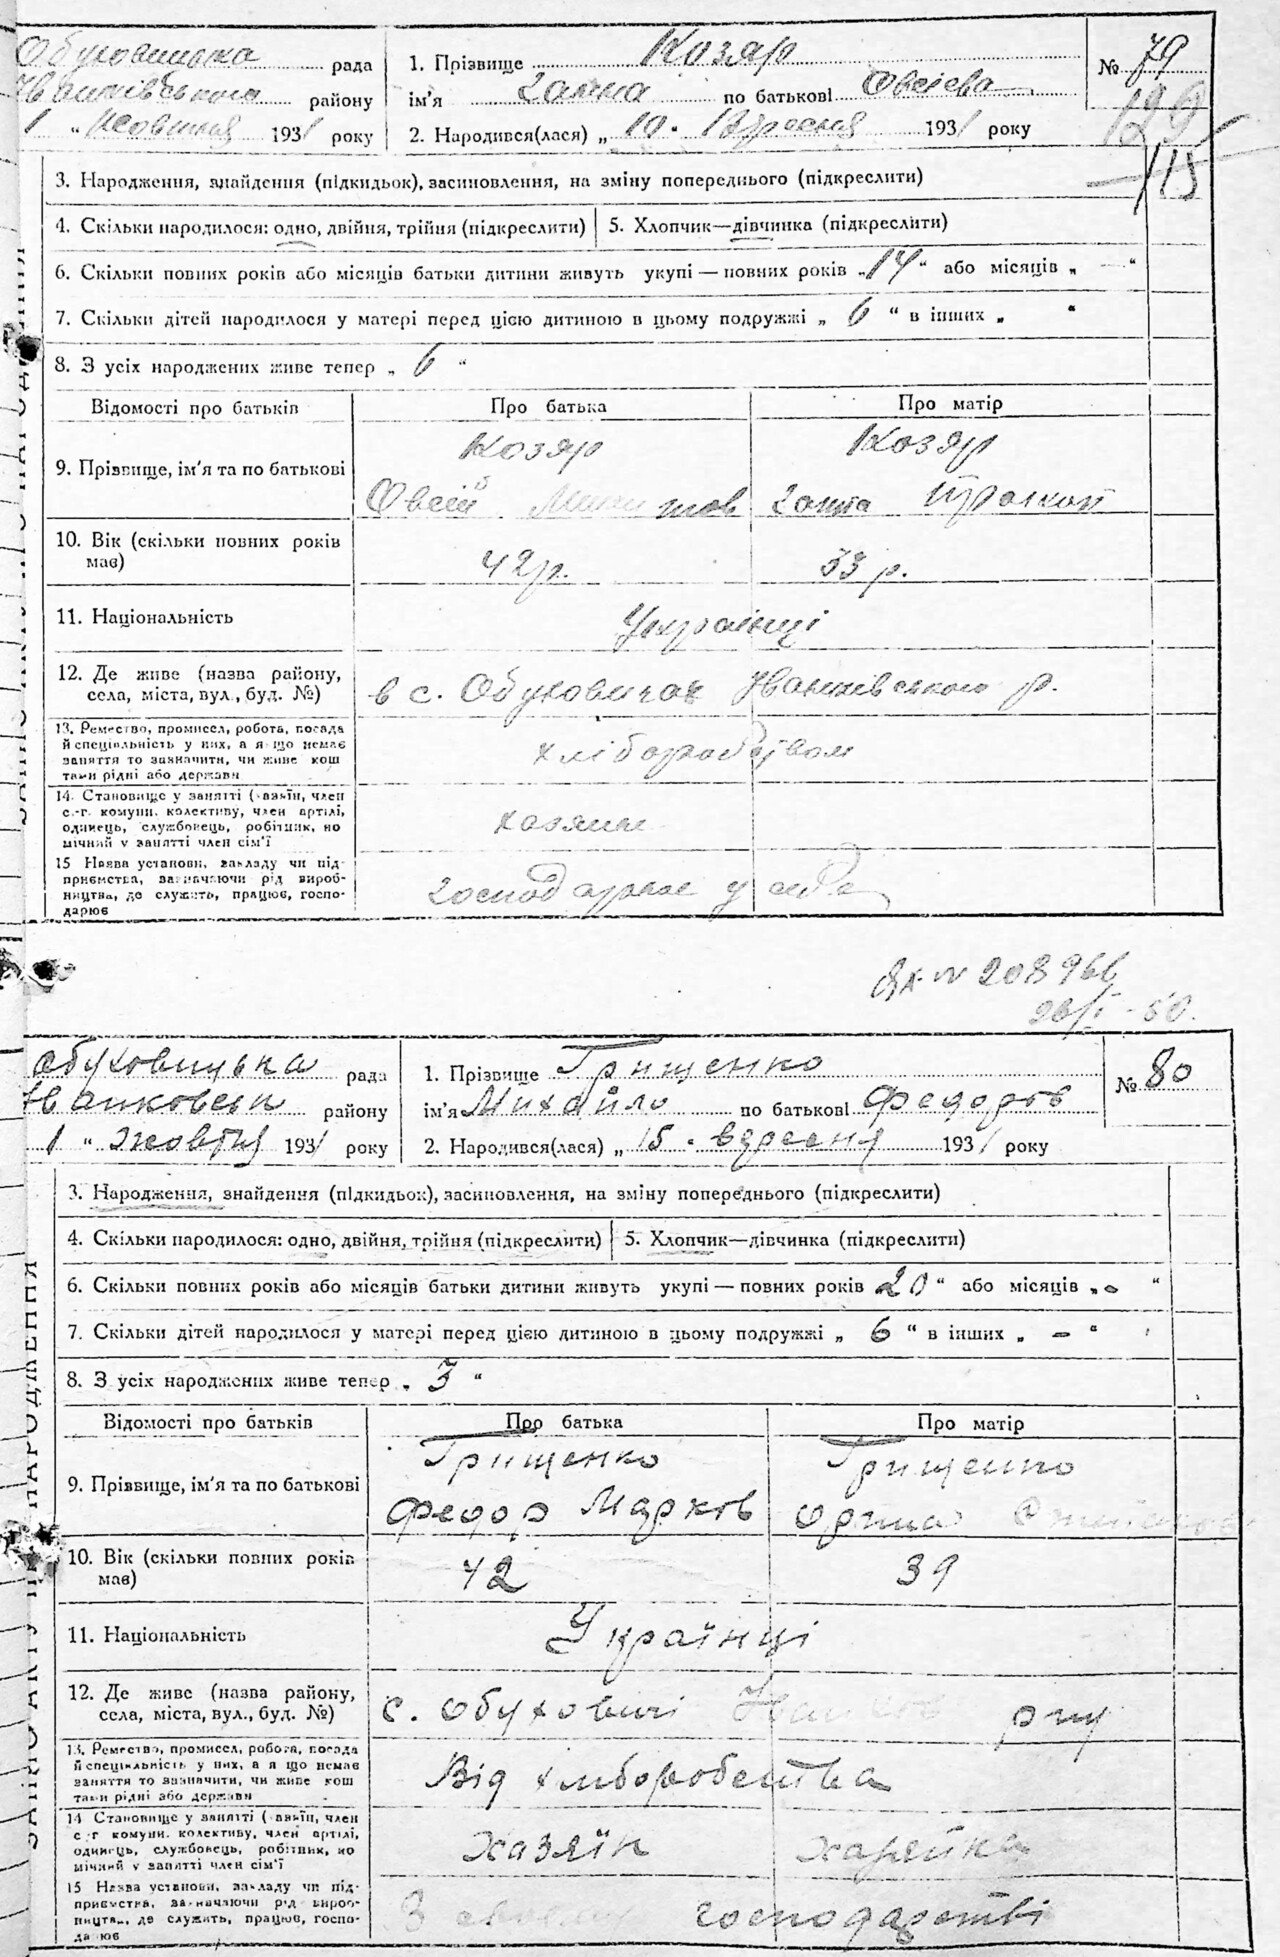 Обуховицька рада
Іванківського району
1 " Жовтня 1931 року
1. Прізвище Козяр
ім'я Ганна по батькові Овсієва
2. Народився(лася) „ 10 " Вересня 1931 року
№ 79
129
115
3. Народження, знайдення (підкидьок), засиновлення, на зміну попереднього (підкреслити)
4. Скільки народилося: одно, двійня, трійня (підкреслити) 5. Хлопчик—дівчинка (підкреслити)
6. Скільки повних років або місяців батьки дитини живуть укупі — повних років „ 14 " або місяців „ — "
7. Скільки дітей народилося у матері перед цією дитиною в цьому подружжі „ 6 " в інших „ "
8. З усіх народжених живе тепер „ 6 "
Відомості про батьків Про батька Про матір
Козяр Козяр
9. Прізвище, ім'я та по батькові
Овсій тов Ганна Прокоп
10. Вік (скільки повних років має) 42 р. 33 р.
11. Національність Українці
12. Де живе (назва району, села, міста, вул., буд. №) в с. Обуховичах Іванківського р.
13. Ремество, промисел, робота, посада
й спеціяльність у них, а якщо немає
заняття то зазначити, чи живе кош
тами рідні або держави
хліборобством
14. Становище у занятті (хазяїн, член
с.-г. комуни, колективу, член артілі,
одинець, службовець, робітник, по
мічний у занятті член сім'ї
хазяїн
15 Назва установи, закладу чи під-
приємства, зазначаючи рід вироб-
ництва, де служить, працює, госпо-
дарює
господарює у себе
№ 208966
26/I - 50.
Обуховицька рада
Іванковськ району
1 " Жовтня 1931 року
1. Прізвище Грищенко
ім'я Михайло по батькові Федоров
2. Народився(лася) „ 15 " вересня 1931 року
№ 80
3. Народження, знайдення (підкидьок), засиновлення, на зміну попереднього (підкреслити)
4. Скільки народилося: одно, двійня, трійня (підкреслити) 5. Хлопчик—дівчинка (підкреслити)
6. Скільки повних років або місяців батьки дитини живуть укупі — повних років 20 " або місяців „ - "
7. Скільки дітей народилося у матері перед цією дитиною в цьому подружжі „ 6 " в інших „ - "
8. З усіх народжених живе тепер „ 3 "
Відомості про батьків Про батька Про матір
Грищенко Грищенко
9. Прізвище, ім'я та по батькові
Федор Марков Орина
10. Вік (скільки повних років має) 42 39
11. Національність Українці
12. Де живе (назва району, села, міста, вул., буд. №) с. Обуховичі Іванков р-ну
13. Ремество, промисел, робота, посада
й спеціяльність у них, а якщо немає
заняття то зазначити, чи живе кош
тами рідні або держави
Від хліборобства
14 Становище у занятті (хазяїн, член
с.-г комуни, колективу, член артілі,
одинець, службовець, робітник, по
мічний у занятті член сім'ї
хазяїн хазяйка
15 Назва установи, закладу чи під-
приємства, зазначаючи рід вироб-
ництва, де служить, працює, госпо-
дарює
господарстві
ЗАПИС АКТУ ПРО НАРОДЖЕННЯ